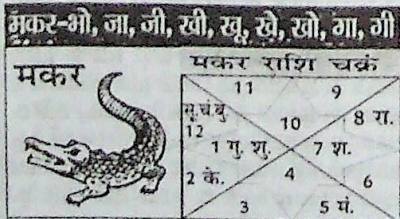 मकर-भो, जा, जी, खी, खू, खे, खो, गा, गी
मकर
मकर राशि चक्रं
11
9
सू.चं.बु
12
10
8 रा.
1 गु. शु.
7 श.
2 कें.
4
6
3
5 मं.